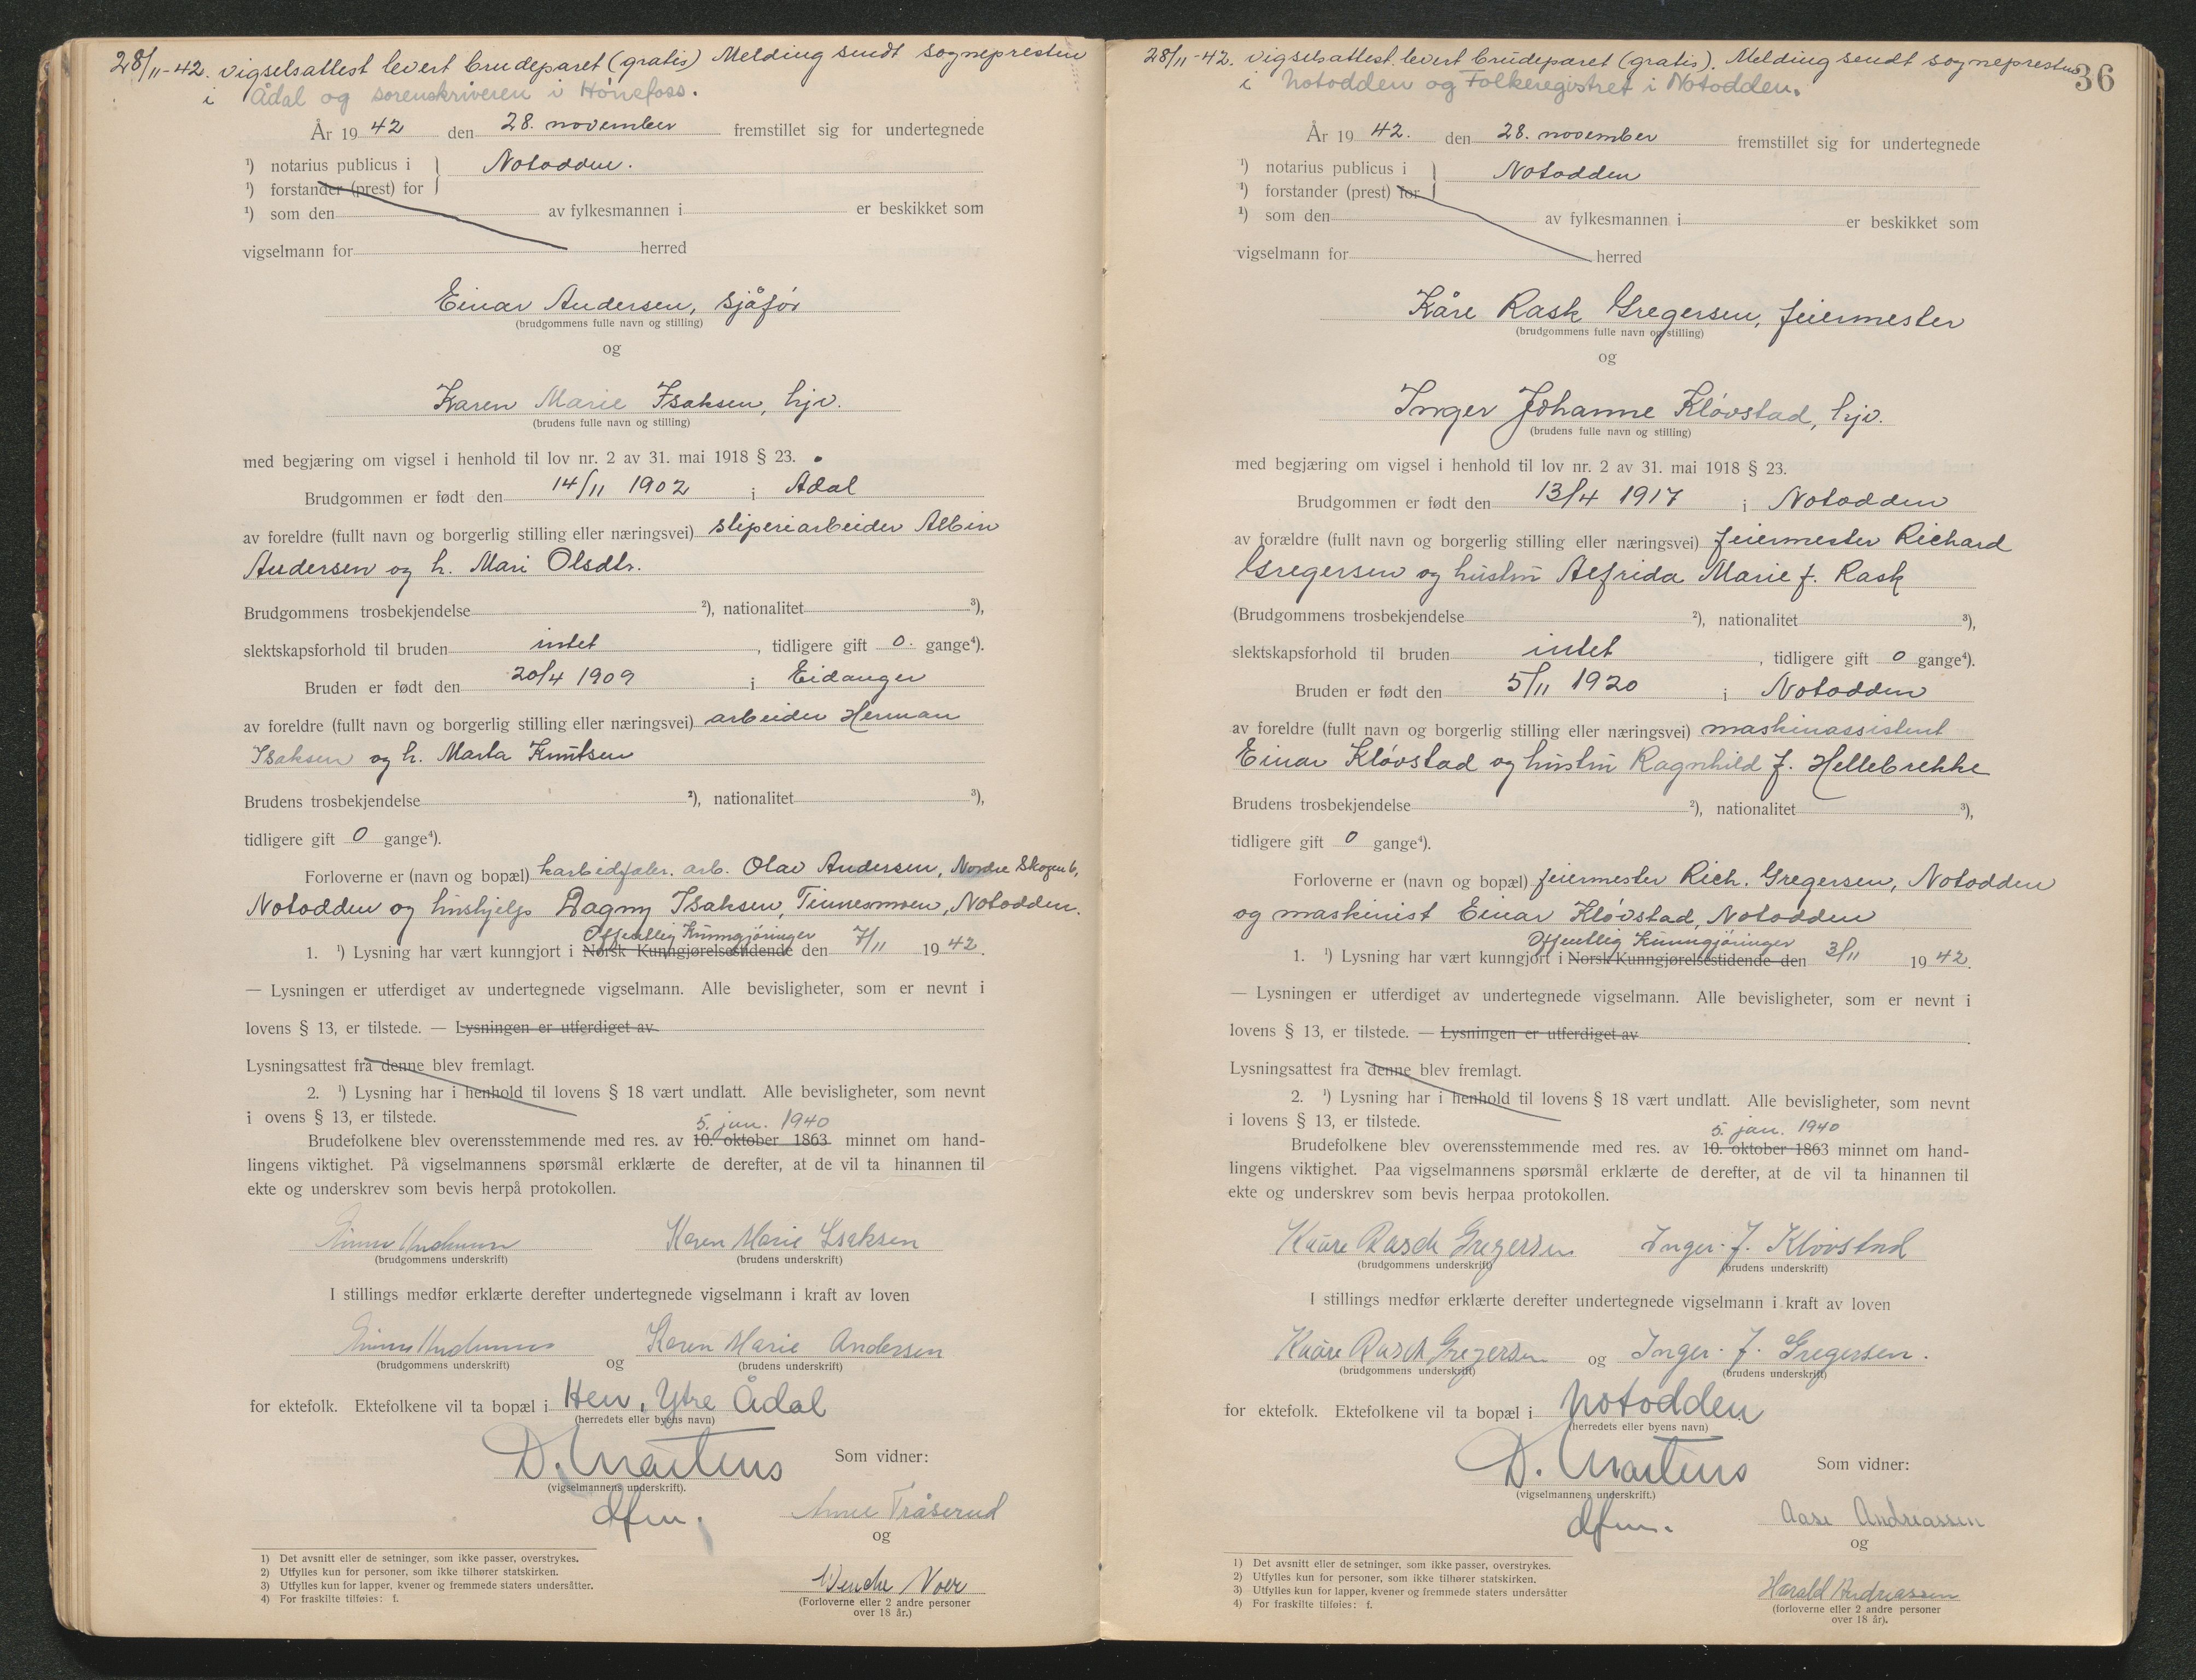 28/11-42. vigselsattest levert brudeparet (gratis) Melding sendt sognepresten
i Ådal og sorenskriveren i Hønefoss.
År 19 42 den 28. november fremstillet sig for undertegnede
¹) notarius publicus i } Notodden.
¹) forstander (prest) for
¹) som den av fylkesmannen i er beskikket som
vigselmann for herred
Einar Andersen, sjåfør
(brudgommens fulle navn og stilling)
og
Karen Marie Isaksen, hjv.
(brudens fulle navn og stilling)
med begjæring om vigsel i henhold til lov nr. 2 av 31. mai 1918 § 23.
Brudgommen er født den 14/11 1902 i Ådal
av foreldre (fullt navn og borgerlig stilling eller næringsvei) sliperiarbeider Albin
Andersen og h. Mari Olsdtr.
Brudgommens trosbekjendelse ²), nationalitet ³),
slektskapsforhold til bruden intet, tidligere gift 0. gange⁴).
Bruden er født den 20/4 1909 i Eidanger
av foreldre (fullt navn og borgerlig stilling eller næringsvei) arbeider Herman
Isaksen og h. Marta Knutsen
Brudens trosbekjendelse ²), nationalitet ³),
tidligere gift 0 gange⁴).
Forloverne er (navn og bopæl) karbidfabr. arb. Olav Andersen, Nordre Skogen 6,
Notodden og hushjelp Dagny Isaksen, Tinnesmoen, Notodden.
Offentlig Kunngjøringer
1. ¹) Lysning har vært kunngjort i Norsk Kunngjørelsestidende den 7/11 19 42.
— Lysningen er utferdiget av undertegnede vigselmann. Alle bevisligheter, som er nevnt i
lovens § 13, er tilstede. — Lysningen er utferdiget av
Lysningsattest fra denne blev fremlagt.
2. ¹) Lysning har i henhold til lovens § 18 vært undlatt. Alle bevisligheter, som nevnt
i ovens § 13, er tilstede.
5. jan. 1940
Brudefolkene blev overensstemmende med res. av 10. oktober 1863 minnet om hand-
lingens viktighet. På vigselmannens spørsmål erklærte de derefter, at de vil ta hinannen til
ekte og underskrev som bevis herpå protokollen.
Einar Andersen Karen Marie Isaksen
(brudgommens underskrift) (brudens underskrift)
I stillings medfør erklærte derefter undertegnede vigselmann i kraft av loven
Einar Andersen og Karen Marie Andersen
(brudgommens underskrift) (brudens underskrift)
for ektefolk. Ektefolkene vil ta bopæl i Hen, Ytre Ådal
(herredets eller byens navn)
D. Martens Som vidner:
(vigselmannens underskrift).
dfm.
Anne Tråserud
og
Wenche Voer
(Forloverne eller 2 andre personer
over 18 år.)
1) Det avsnitt eller de setninger, som ikke passer, overstrykes.
2) Utfylles kun for personer, som ikke tilhører statskirken.
3) Utfylles kun for lapper, kvener og fremmede staters undersåtter.
4) For fraskilte tilføies: f.
36
28/11-42. vigselsattest levert brudeparet (gratis). Melding sendt sognepresten
i Notodden og Folkeregistret i Notodden.
År 19 42. den 28. november fremstillet sig for undertegnede
¹) notarius publicus i } Notodden
¹) forstander (prest) for
¹) som den av fylkesmannen i er beskikket som
vigselmann for herred
Kåre Rask Gregersen, feiermester
(brudgommens fulle navn og stilling)
og
Inger Johanne Kløvstad, hjv.
(brudens fulle navn og stilling)
med begjæring om vigsel i henhold til lov nr. 2 av 31. mai 1918 § 23.
Brudgommen er født den 13/4 1917 i Notodden
av forældre (fullt navn og borgerlig stilling eller næringsvei) feiermester Richard
Gregersen og hustru Alfrida Marie f. Rask
(Brudgommens trosbekjendelse ²), nationalitet ³),
slektskapsforhold til bruden intet, tidligere gift 0 gange⁴).
Bruden er født den 5/11 1920 i Notodden
av foreldre (fullt navn og borgerlig stilling eller næringsvei) maskinassistent
Einar Kløvstad og hustru Ragnhild f. Hellebrekke
Brudens trosbekjendelse ²), nationalitet ³),
tidligere gift 0 gange⁴).
Forloverne er (navn og bopæl) feiermester Rich. Gregersen, Notodden
og maskinist Einar Kløvstad, Notodden
Offentlig Kunngjøringer
1. ¹) Lysning har vært kunngjort i Norsk Kunngjørelsestidende den 3/11 19 42.
— Lysningen er utferdiget av undertegnede vigselmann. Alle bevisligheter, som er nevnt i
lovens § 13, er tilstede. — Lysningen er utferdiget av
Lysningsattest fra denne blev fremlagt.
2. ¹) Lysning har i henhold til lovens § 18 vært undlatt. Alle bevisligheter, som nevnt
i lovens § 13, er tilstede.
5. jan. 1940
Brudefolkene blev overensstemmende med res. av 10. oktober 1863 minnet om hand-
lingens viktighet. Paa vigselmannens spørsmål erklærte de derefter, at de vil ta hinannen til
ekte og underskrev som bevis herpaa protokollen.
Kaare Rasck Gregersen Inger J. Kløvstad
(brudgommens underskrift) (brudens underskrift)
I stillings medfør erklærte derefter undertegnede vigselmann i kraft av loven
Kaare Rasck Gregersen og Inger J. Gregersen.
(brudgommens underskrift) (brudens underskrift)
for ektefolk. Ektefolkene vil ta bopæl i Notodden
(herredets eller byens navn)
D. Martens Som vidner:
(vigselmannens underskrift.)
dfm.
Aase Andreassen
og
Harald Andreassen
(forloverne eller 2 andre personer
over 18 år).
1) Det avsnitt eller de setninger, som ikke passer, overstrykes.
2) Utfylles kun for personer, som ikke tilhører statskirken.
3) Utfylles kun for lapper, kvener og fremmede staters undersåtter
4) For fraskilte tilføies: f.